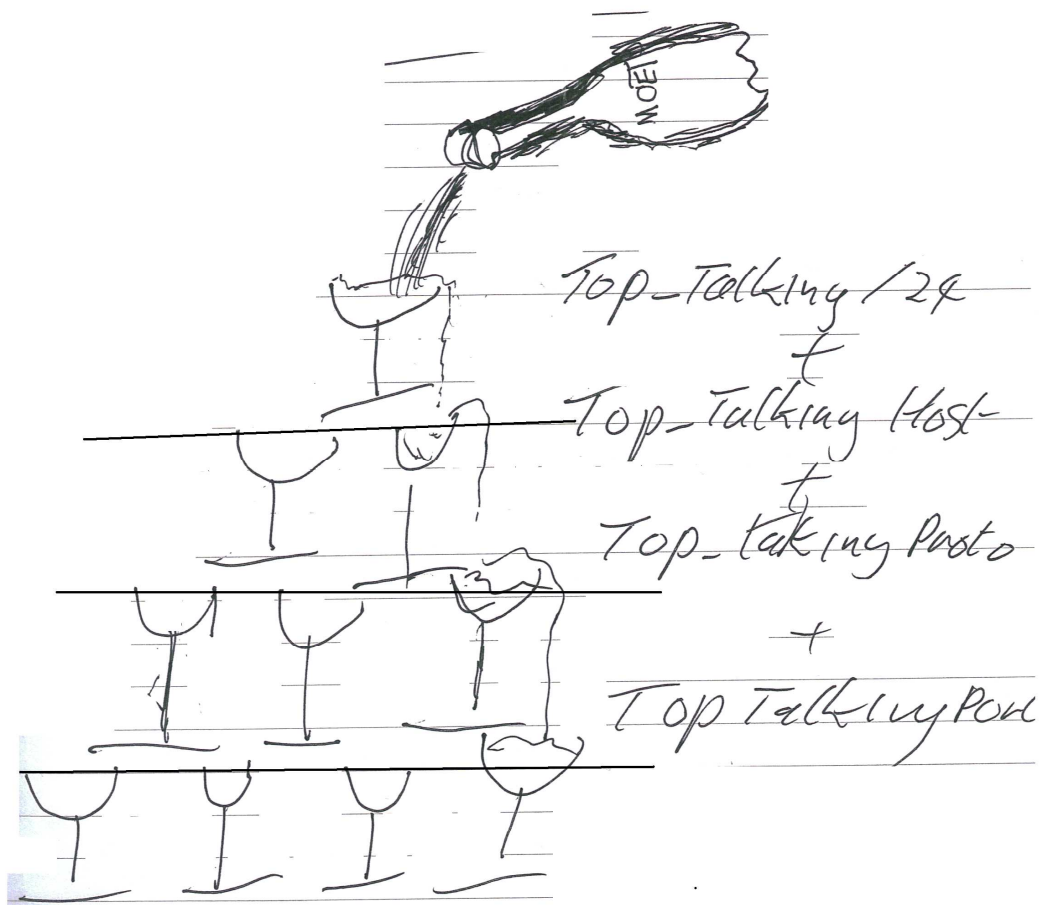 MOET
Top_Talking /24
+
Top_Talking Host
+
Top_talking Proto
+
Top Talking Port